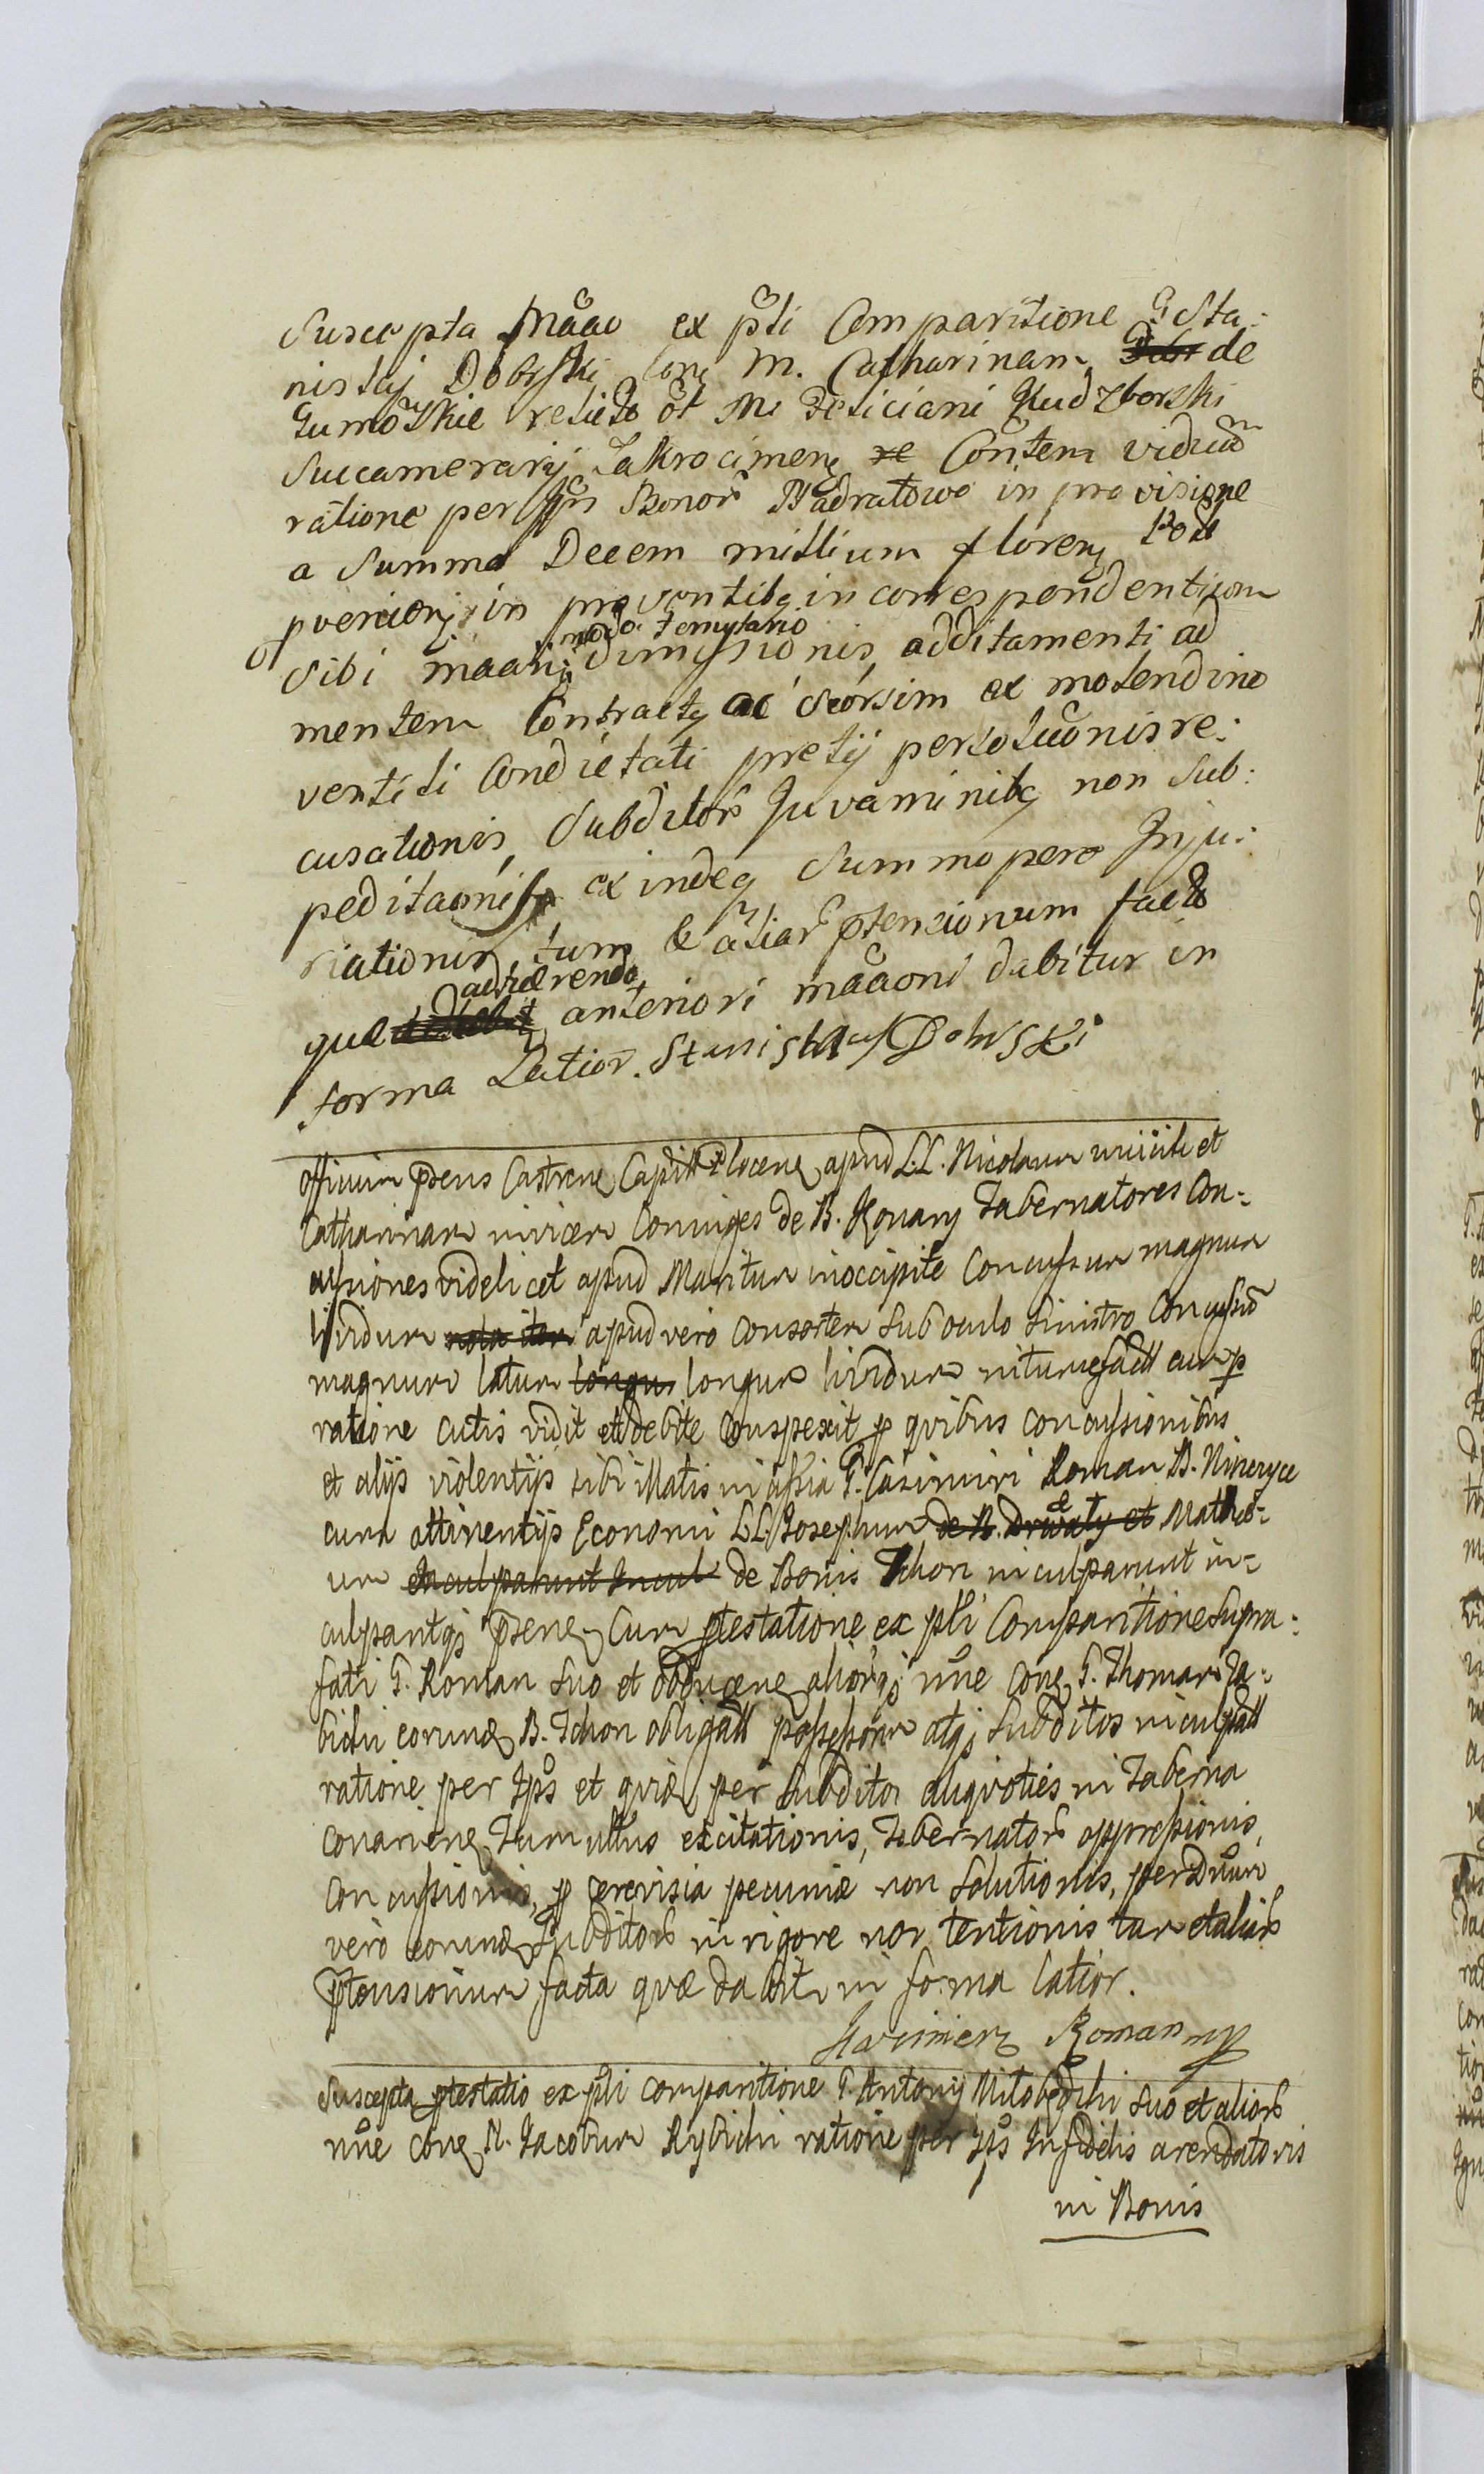 Suscepta Mãao ex pľti Comparitione G Sta:
nislaj Dobrski Con̨ M. Catharinam de
Gumowskie relictã ol M. Feliciani Kudzborski
Succamerarij Zakrocimen̨ Conťem viduam
ratione per Ips Bonor Nadratowo in provisione
a Summa Decem millium floren̨ Pol
in proventib9 in correspondentiam
modo temerario
Sibi maãti: dimissionis additamenti ad
mentem Contract9 ac seorsim ex molendino
ventili Condictati pretij persolučonis re:
cusationis, Subditor Juvaminib9 non Sub:
peditaonis exindeq Summopere Inju:
riationis, tum & aliar ptensionum facta
adhærendo
quæ anteriori mãaoni dabitur in
forma Latior. Stanislaus Dobrski
Officium p̃sens Castrense Capitľ Plocen̨ apud L.L. Nicolaum et
Catharinam Coniuges de B. Konary Tabernatores Con=
cussiones videlicet apud Maritum in occipite Concussum magnum
lividum apud vero consortem sub oculo sinistro Concussum
magnum latum longum lividum cum
ratione cutis vidit et debite conspexit p quibus concussionibus
et alijs violentijs sibi illatis in assia G. Casimiri Roman B.
cum attinentijs Economi LL. Josephum Mathæ=
um de Bonis Ichon inculparunt in=
culpantq; p̃sen̨ Cum ptestatione ex pľti Comparitione supra:
fati G. Roman suo et alior nõe Con̨ G. Thomam Za=
bicki eorund̨ B. Ichon obligatľ possessorem atq; subditos inculpatľ
ratione per Ips et quid̨ per subditos aliquoties in Taberna
Conarien̨ Tumultus excitationis, Tabernator oppressionis,
concussionis, p cerevisia pecuniæ non solutionis, per Dnum
vero eorund̨ Subditor in rigore non tentionis tum et aliar
ptensionum facta quæ dabit in forma latior.
Kazimierz Roman mp
Suscepta ptestatio ex pľti comparitione G. Antonij Milobędzki suo et alior
nõe Con̨ N. Jacobum Rybicki ratione per Ips Infidelis arendatoris
in Bonis